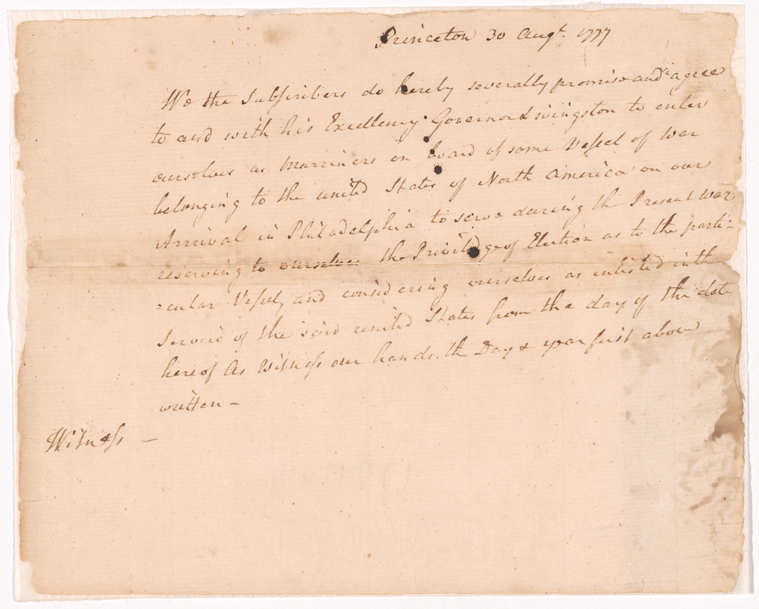 Princeton 30 Augt. 1777
We the Subscribers do hereby severally promise and agree
to and with his Excellency Governor Livingston to enter
ourselves as Marriners on board of some Vessel of War
belonging to the united States of North America on our
Arrival in Philadelphia to serve during the Present War
reserving to ourselves the Priviledge of Election as to the parti-
-cular Vessel, and considering ourselves as inlisted in the
Service of the said united States from the day of the date
hereof As Witness our hands the Day & year first above
written –
Witness –